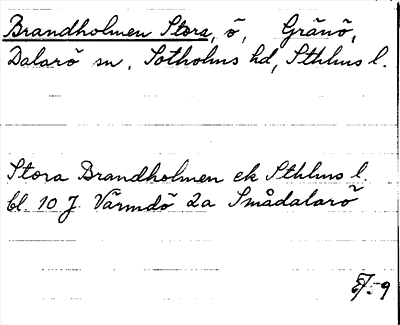 Brandholmen Stora, ö, Gränö,
Dalarö sn, Sotholms hd, Sthlms l.
Stora Brandholmen ek Sthlms l.
bl. 10 J. Värmdö 2a Smådalarö